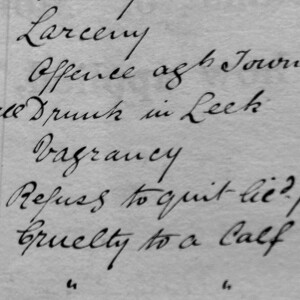 Larceny
Offence agst Town
Drunk in Leek
Vagrancy
Refuss to quit licd.
Cruelty to a Calf
" "